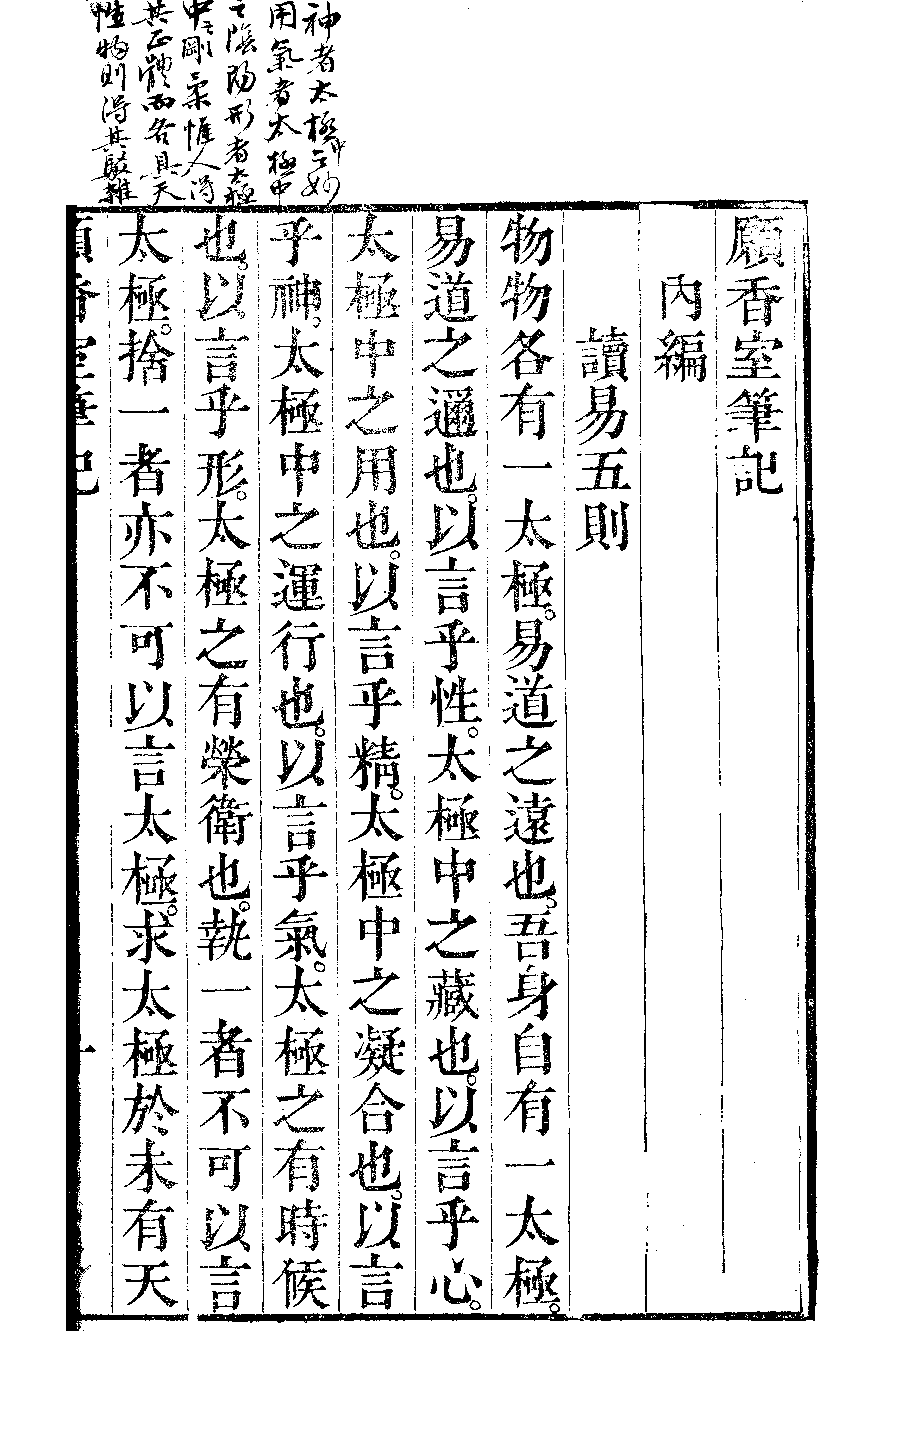 神者太極中之妙
用氣者太極中
之陰陽形者太極
中之剛柔惟人得
其正體而各具天
性物則得其駁雜
願香室筆記
內編
讀易五則
物物各有一太極。易道之遠也。吾身自有一太極。
易道之邇也。以言乎性。太極中之藏也。以言乎心。
太極中之用也。以言乎精。太極中之凝合也。以言
乎神。太極中之運行也。以言乎氣。太極之有時候
也。以言乎形。太極之有榮衛也。執一者不可以言
太極。捨一者亦不可以言太極。求太極於未有天
願香室筆記
一